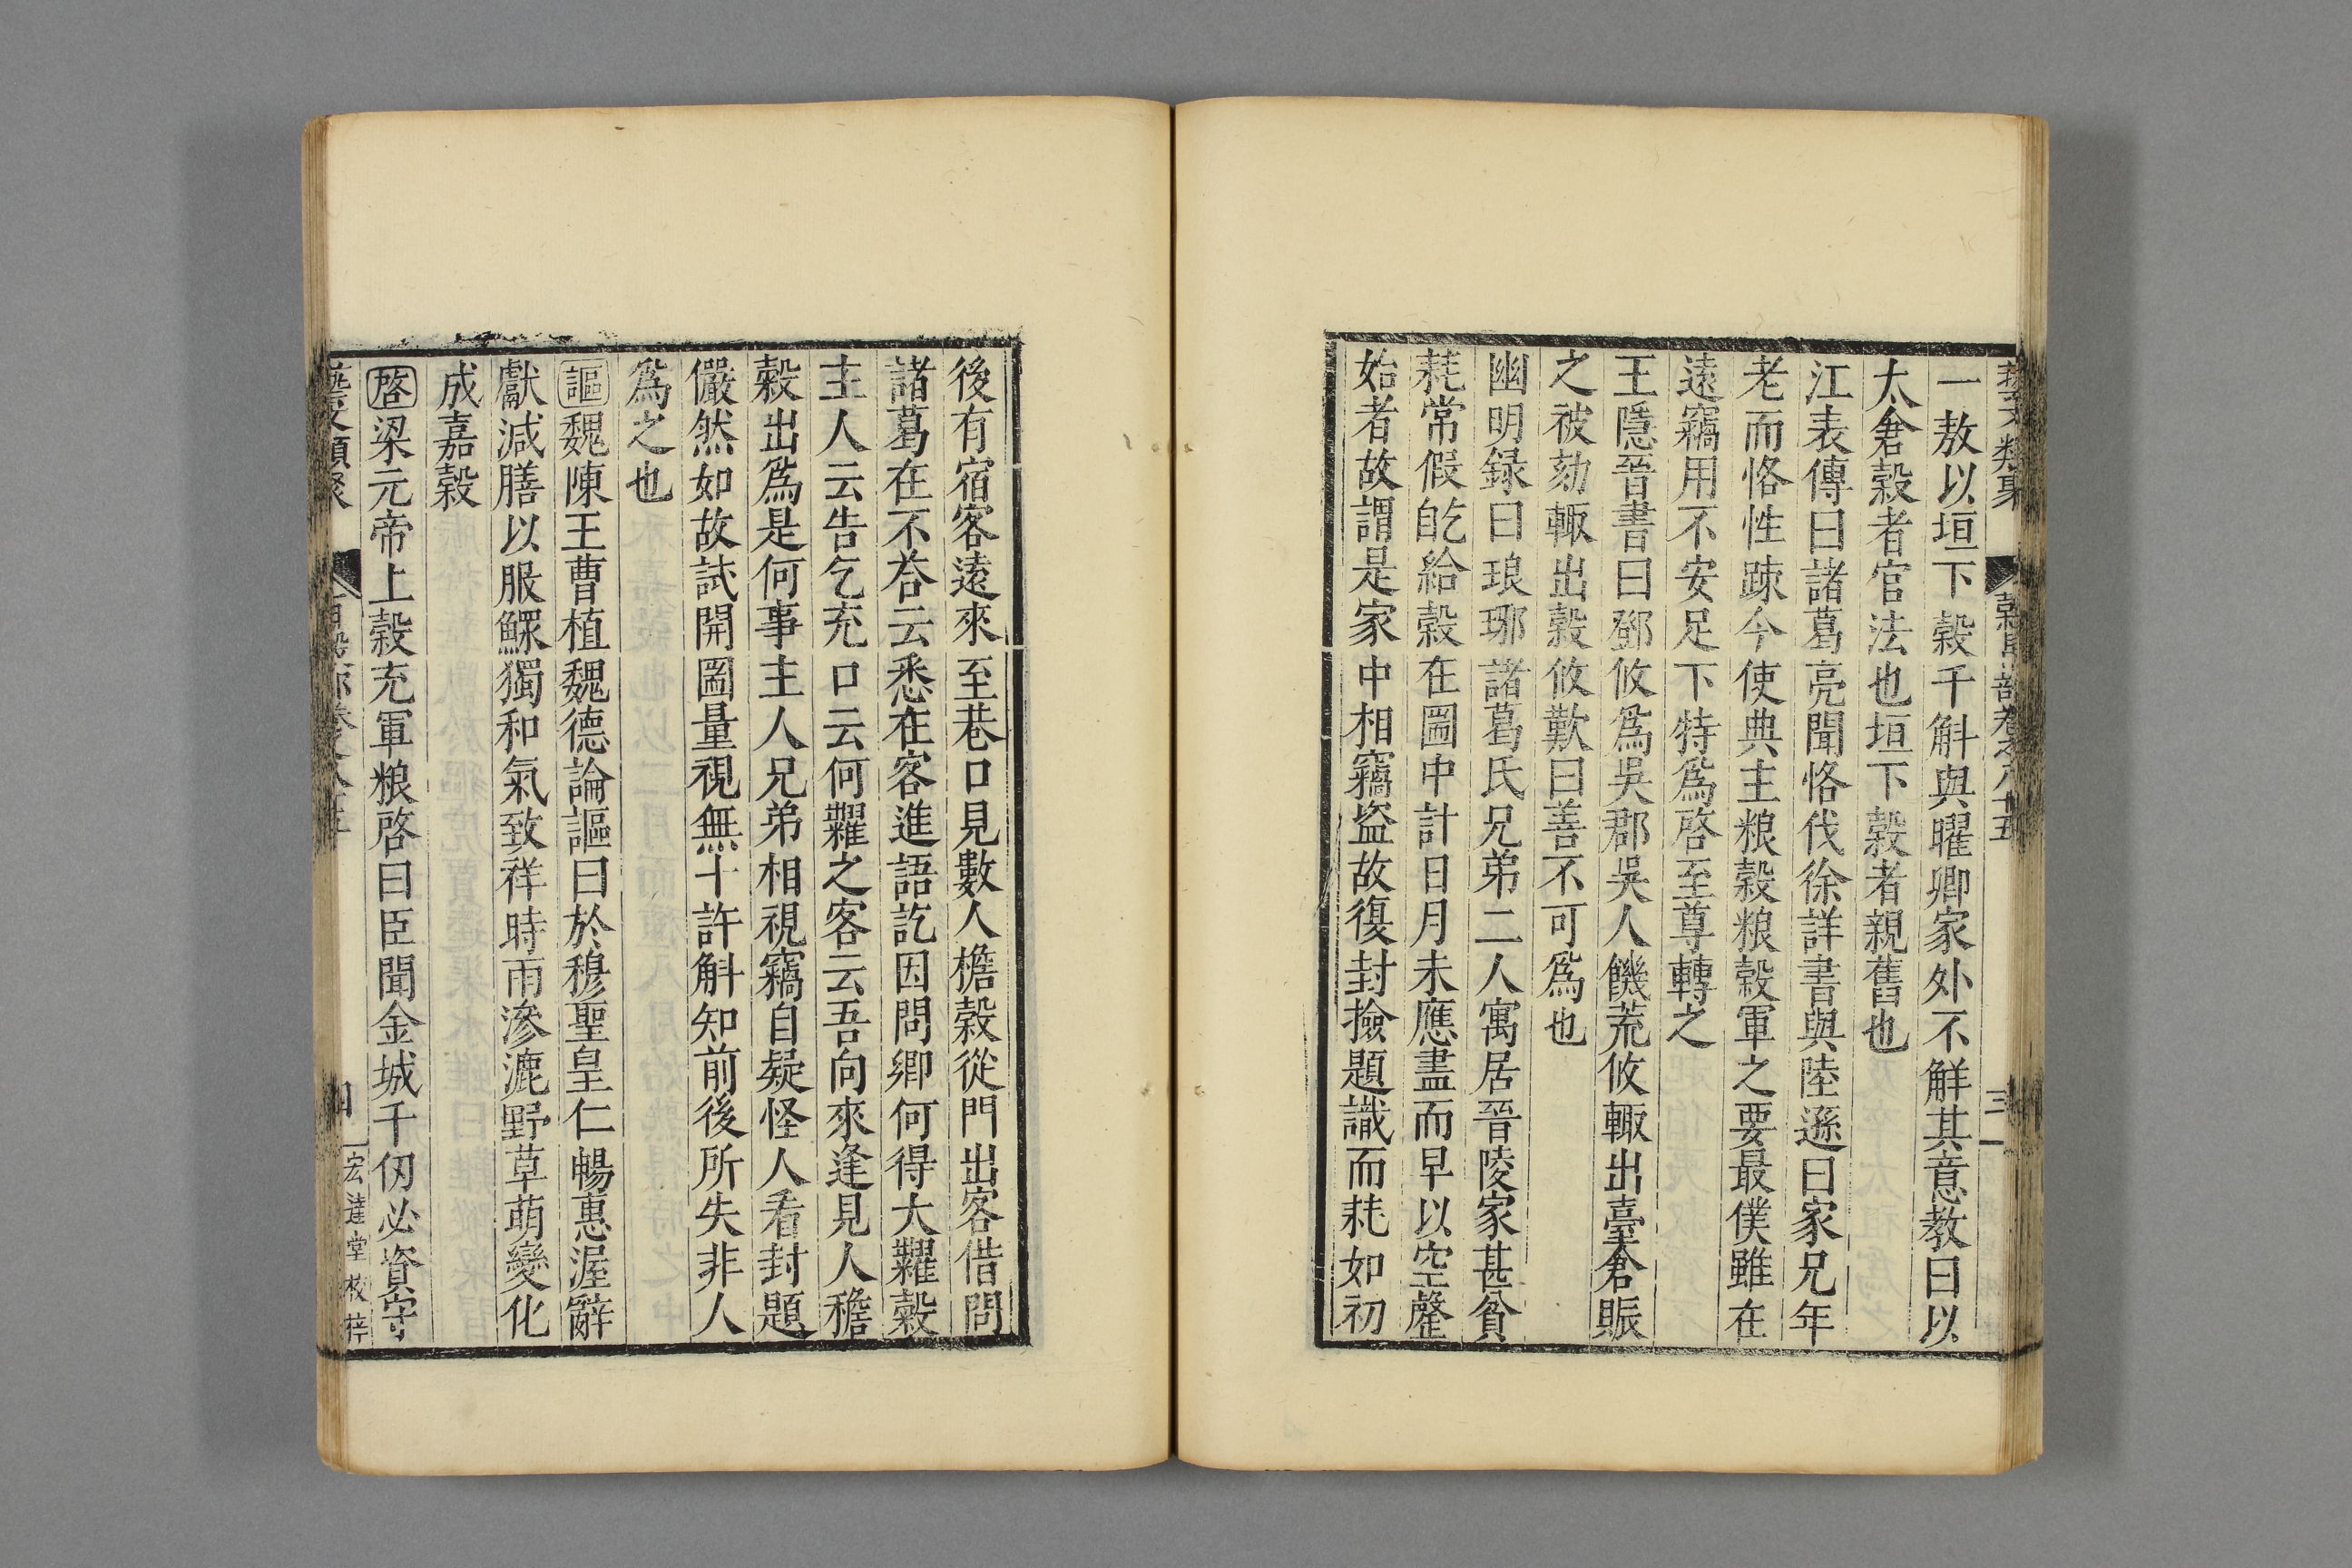 藝文類聚 穀部卷之八十五 三
一敖以垣下穀千斛與曜卿家外不解其意教曰以
太倉穀者官法也垣下穀者親舊也
江表傳曰諸葛亮聞恪伐徐詳書與陸遜曰家兄年
老而恪性踈今使典主粮穀粮穀軍之要最僕雖在
遠竊用不安足下特爲啓至尊轉之
王隱晉書曰鄧攸爲吳郡吳人饑荒攸輙出臺倉賑
之被劾輙出穀攸歎曰善不可爲也
幽明録曰琅琊諸葛氏兄弟二人寓居晉陵家甚貧
耗常假乞自給穀在圌中計日月未應盡而早以空罄
始者故謂是家中相竊盜故復封撿題識而耗如初
後有宿客遠來至巷口見數人檐穀從門出客借問
諸葛在不荅云悉在客進語訖因問卿何得大糶穀
主人云告乞充口云何糶之客云吾向來逢見人穭
穀出爲是何事主人兄弟相視竊自疑怪人看封題
儼然如故試開圌量視無十許斛知前後所失非人
爲之也
謳魏陳王曹植魏德論謳曰於穆聖皇仁暢惠渥辭
獻減膳以服鰥獨和氣致祥時雨滲漉野草萌變化
成嘉穀
啓梁元帝上穀充軍粮啓曰臣聞金城千仞必資守
藝文類聚 百穀部卷之八十五 四 宏達堂校梓